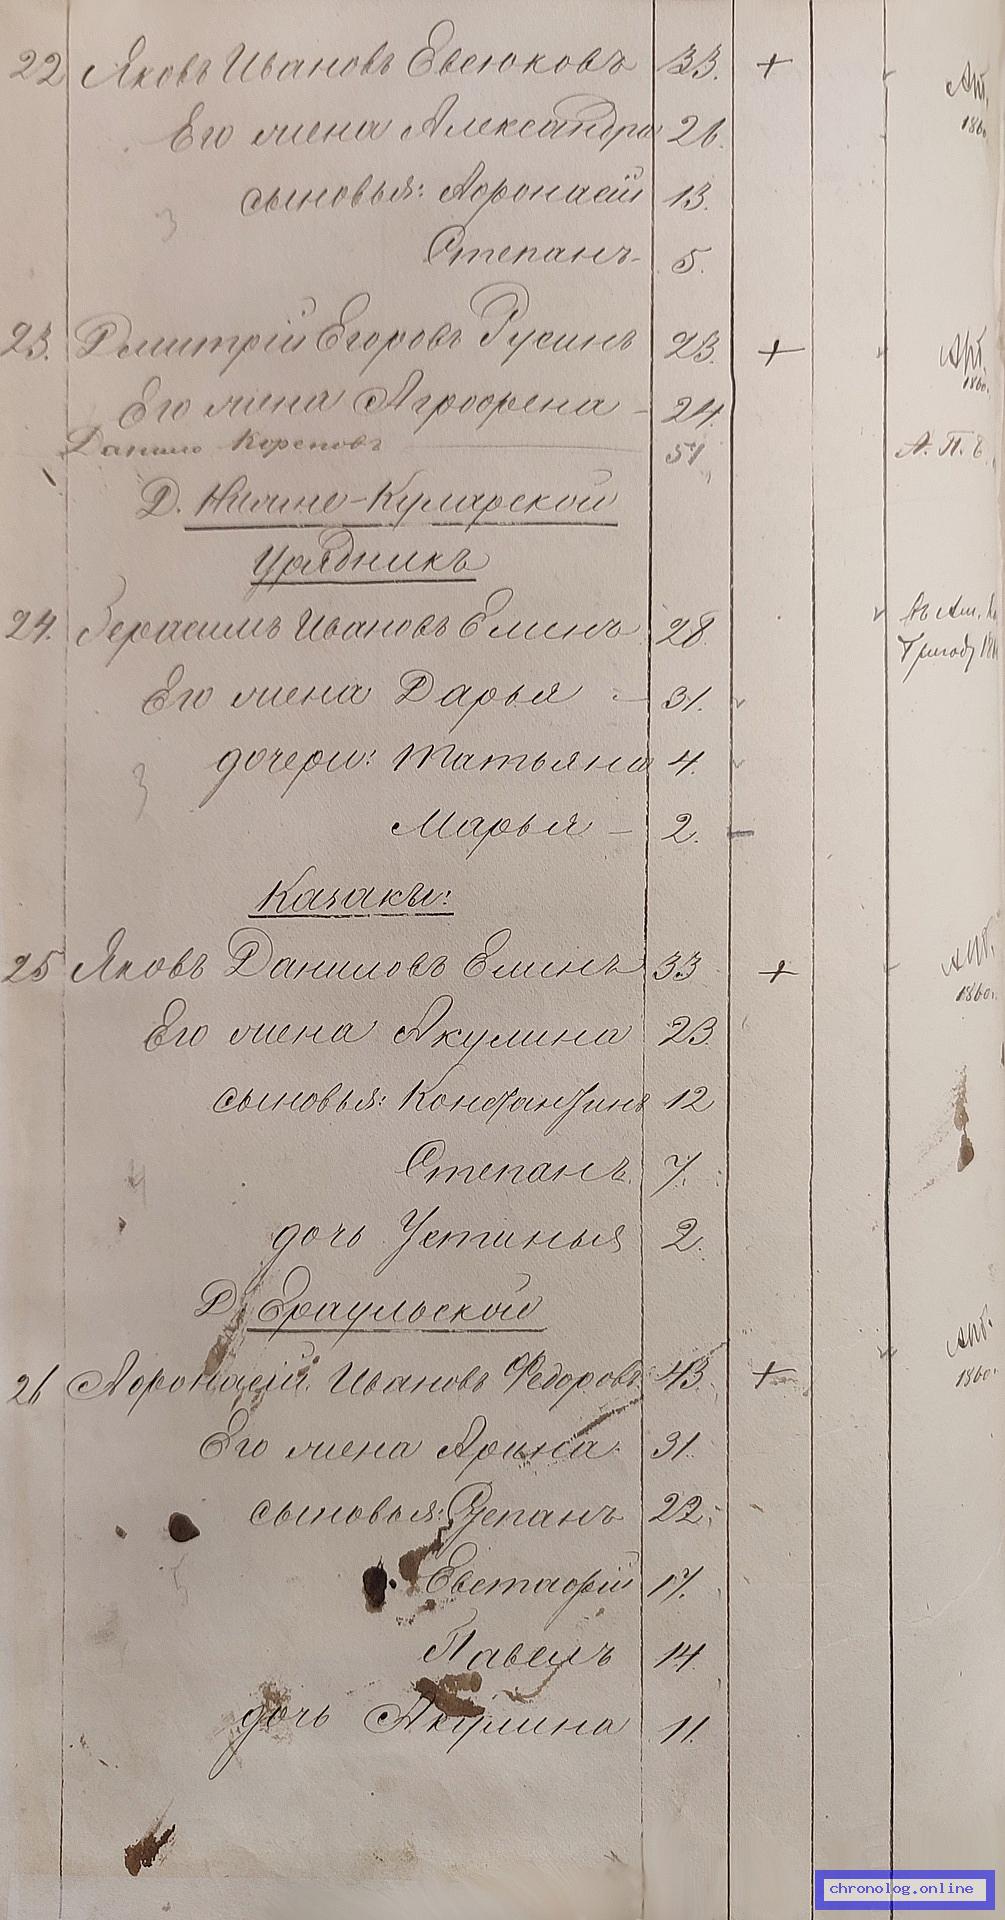 22 Яковъ Ивановъ Евсюковъ 33. + Апр.
Его жена Александра 26. 1860
сыновья: Афонасій 13.
Степанъ 5.
23. Дмитрій Егоровъ Русинъ 23. + Апр.
1860.
Его жена Агрофена 24.
Данило Корсповъ 51 А. П. Е.
Д. Нижне-Кумарской
Урядникъ
24. Герасимъ Ивановъ Елинъ 28.
Его жена Дарья 31.
дочери: Татьяна 4.
Марья 2.
Казаки:
25 Яковъ Даниловъ Елинъ 33 + Апр.
1860.
Его жена Акулина 23.
сыновья: Константинъ 12
Степанъ 7.
дочь Устинья 2.
Д. Ераульской
26 Афонасій Ивановъ Федоровъ 43. + Апр.
1860.
Его жена Арина 31.
сыновья: Степанъ 22.
Евстафій 17.
Павелъ 14.
дочь Акулина 11.
chronolog.online